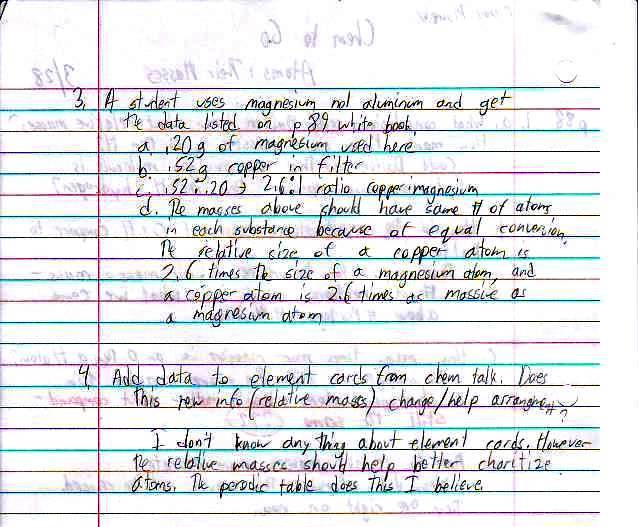 3. A student uses magnesium not aluminum and get
the data listed on p 89 white book.
a .20 g of magnesium used here
b. .52g copper in filter
c. .52:.20 → 2.6:1 ratio copper:magnesium
d. The masses above should have same # of atoms
in each substance because of equal conversion.
The relative size of a copper atom is
2.6 times the size of a magnesium atom, and
a copper atom is 2.6 times as massive as
a magnesium atom
4. Add data to element cards from chem talk. Does
this new info (relative mass) change/help arrangement?
I don't know any thing about element cards. However
the relative masses should help better charitize
atoms. The perodic table does this I believe.